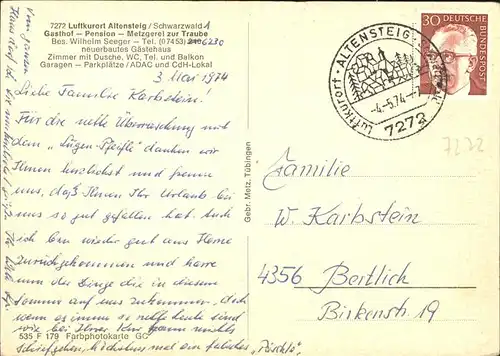 7272 Luftkurort Altensteig / Schwarzwald 1
Gasthof – Pension – Metzgerei zur Traube
Bes. Wilhelm Seeger – Tel. (07453) 6230
neuerbautes Gästehaus
Zimmer mit Dusche, WC, Tel. und Balkon
Garagen – Parkplätze / ADAC und CdH-Lokal
3 Mai 1974
Liebe Familie Karbstein!
Für die nette Überraschung mit
dem „Lügen-Pfeifle" danken wir
Ihnen herzlichst und freuen
uns, daß Ihnen Ihr Urlaub bei
uns so gut gefallen hat. Auch
ich bin wieder gut aus Herne
zurückgekommen und harre
nun der Dinge die in diesem
Sommer auf uns zukommen. Doch
wenn es immer so nette Leute sind
wie bei Ihrer Kur kann nichts
schiefgehen, höchstens mal ein falsches „Pöschtle".
Vom ganzen
Haus
535 F 179 Farbphotokarte GC
Gebr. Metz, Tübingen
Luftkurort · ALTENSTEIG
-4.-5.74-
7272
30
DEUTSCHE
BUNDESPOST
7272
Familie
W. Karbstein
4356 Bertlich
Birkenstr. 19